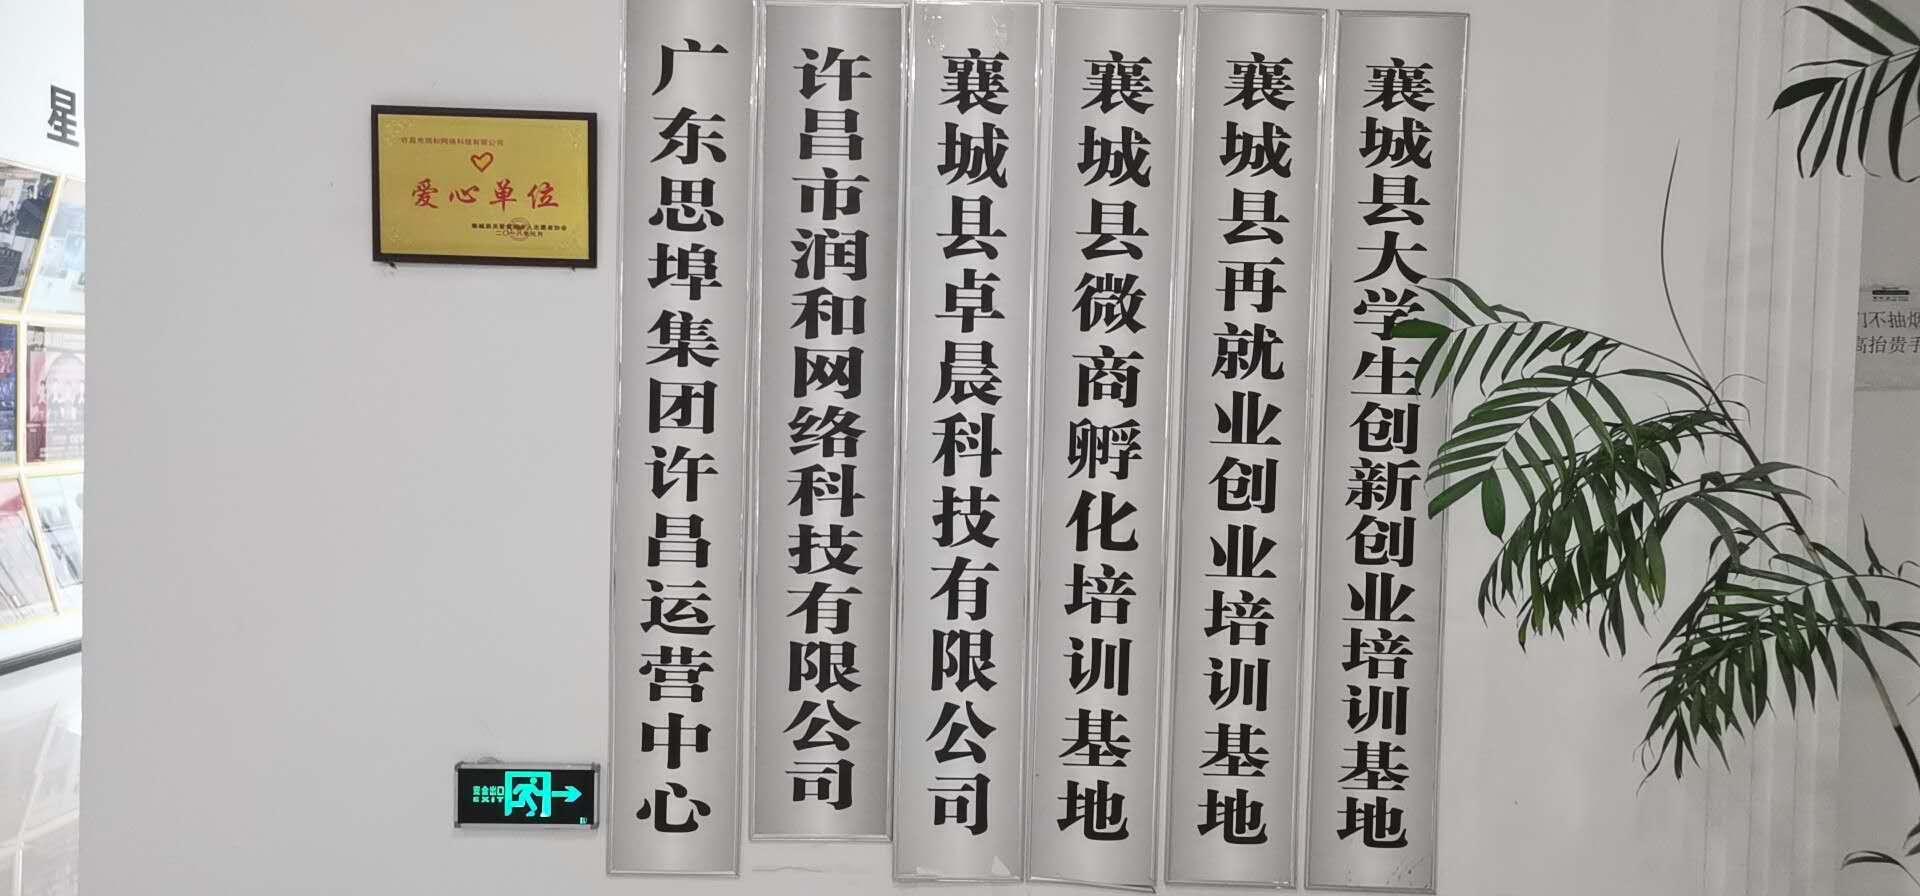 星
许昌市润和网络科技有限公司
爱心单位
二〇一八年元月
安全出口
EXIT
广东思埠集团许昌运营中心
许昌市润和网络科技有限公司
襄城县卓晨科技有限公司
襄城县微商孵化培训基地
襄城县再就业创业培训基地
襄城县大学生创新创业培训基地
门不抽烟
高抬贵手